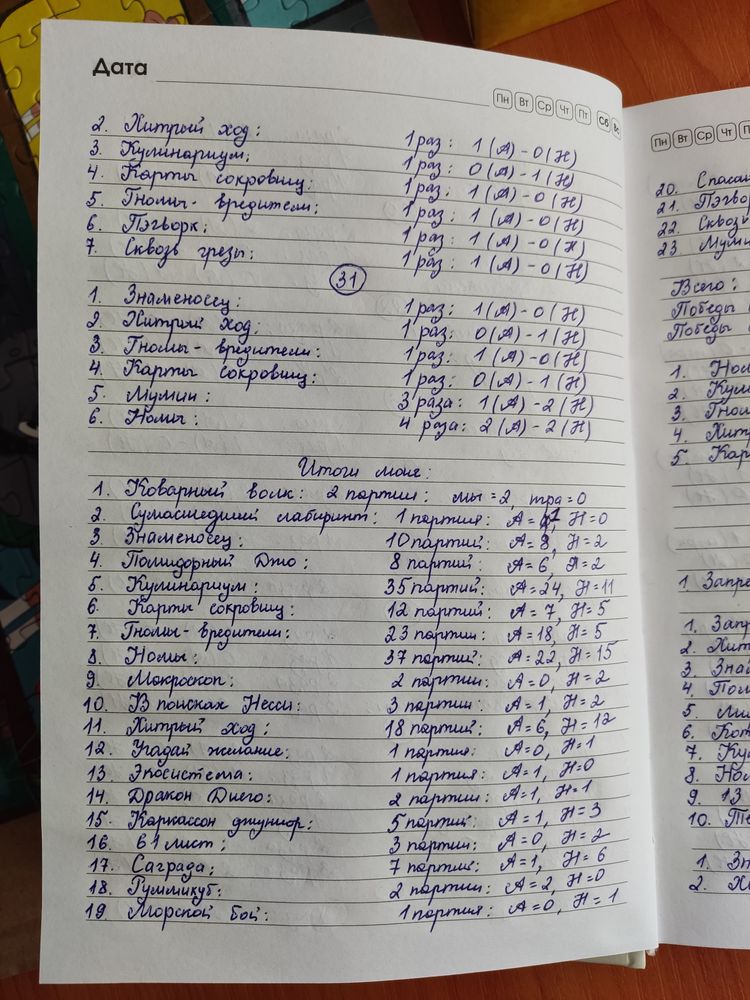 Дата
Пн Вт Ср Чт Пт Сб Вс
2. Хитрый ход: 1 раз: 1 (А) - 0 (Н)
3. Кулинариум: 1 раз: 0 (А) - 1 (Н)
4. Карты сокровищ: 1 раз: 1 (А) - 0 (Н)
5. Гномы-вредители: 1 раз: 1 (А) - 0 (Н)
6. Пэчворк: 1 раз: 1 (А) - 0 (Н)
7. Сквозь грезы: 1 раз: 1 (А) - 0 (Н)
31
1. Знаменосец: 1 раз: 1 (А) - 0 (Н)
2. Хитрый ход: 1 раз: 0 (А) - 1 (Н)
3. Гномы-вредители: 1 раз: 1 (А) - 0 (Н)
4. Карты сокровищ: 1 раз: 0 (А) - 1 (Н)
5. Мумии: 3 раза: 1 (А) - 2 (Н)
6. Номы: 4 раза: 2 (А) - 2 (Н)
Итоги мая:
1. Коварный волк: 2 партии: мы = 2, игра = 0
2. Сумасшедший лабиринт: 1 партия: А = 1, Н = 0
3. Знаменосец: 10 партий: А = 8, Н = 2
4. Помидорный Джо: 8 партий: А = 6, Н = 2
5. Кулинариум: 35 партий: А = 24, Н = 11
6. Карты сокровищ: 12 партий: А = 7, Н = 5
7. Гномы-вредители: 23 партии: А = 18, Н = 5
8. Номы: 37 партий: А = 22, Н = 15
9. Макроскоп: 2 партии: А = 0, Н = 2
10. В поисках Несси: 3 партии: А = 1, Н = 2
11. Хитрый ход: 18 партий: А = 6, Н = 12
12. Угадай желание: 1 партия: А = 0, Н = 1
13. Экосистема: 1 партия: А = 1, Н = 0
14. Дракон Диего: 2 партии: А = 1, Н = 1
15. Каркассон джуниор: 5 партий: А = 1, Н = 3
16. 61 лист: 3 партии: А = 0, Н = 2
17. Саграда: 7 партий: А = 1, Н = 6
18. Руммикуб: 2 партии: А = 2, Н = 0
19. Морской бой: 1 партия: А = 0, Н = 1
Пн Вт Ср Чт
20.
21.
22.
23
Всего:
Победы
Победы
1.
2.
3.
4.
5.
1.
1.
2.
3.
4.
5.
6.
7.
8.
9. 13
10.
1.
2.